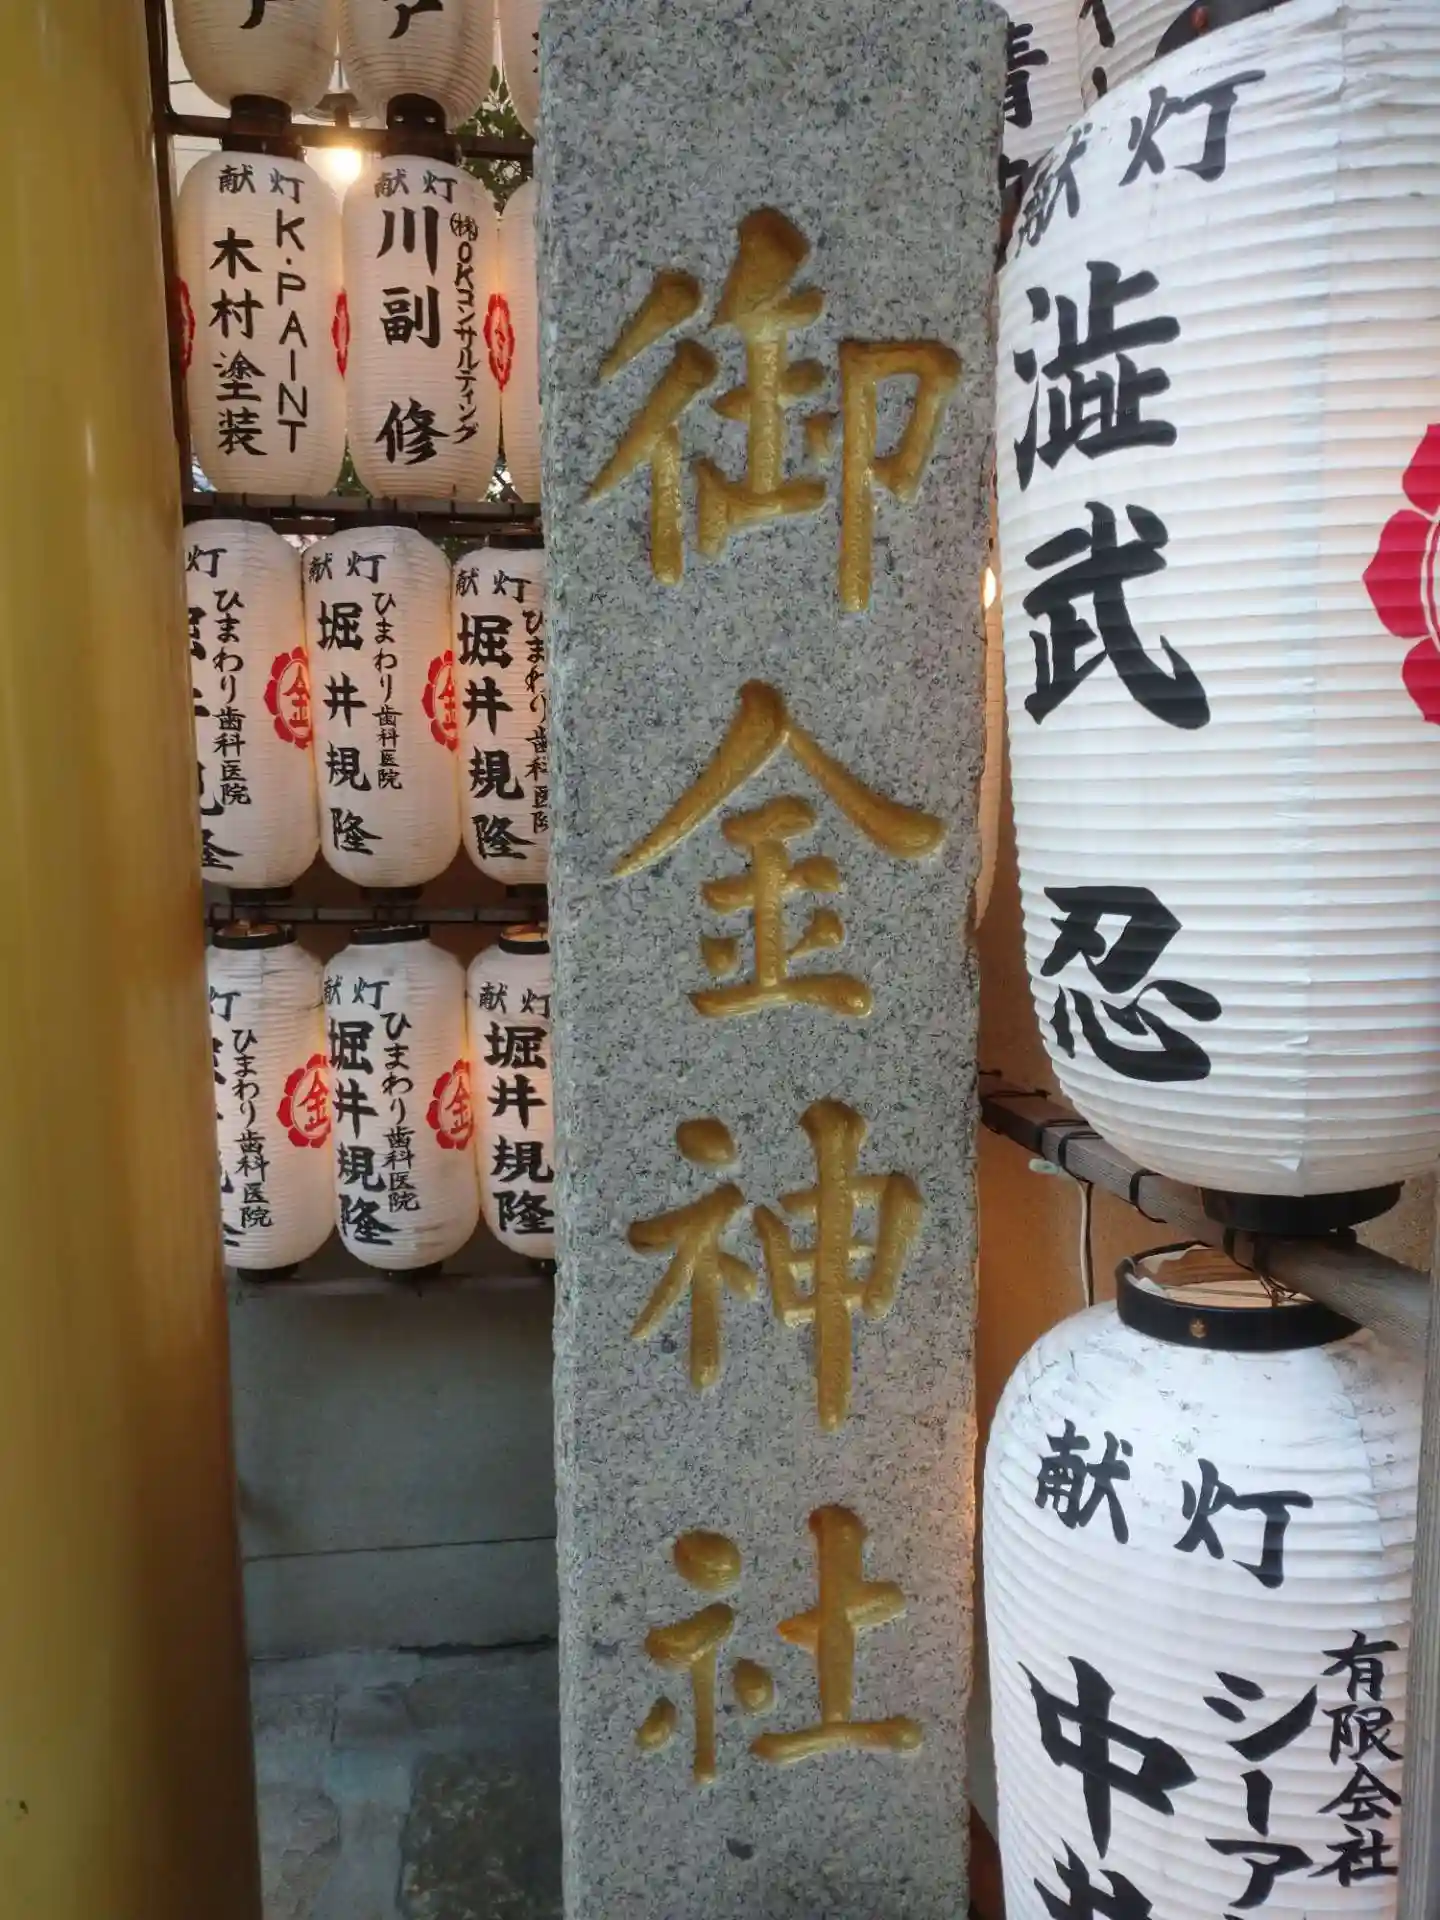 御金神社
献灯
K・PAINT
木村塗装
献灯
㈱OKコンサルティング
川副 修
献灯
ひまわり歯科医院
堀井規隆
金
献灯
ひまわり歯科医院
堀井規隆
金
献灯
ひまわり歯科医
堀井規隆
灯
ひまわり歯科医院
金
献灯
ひまわり歯科医院
堀井規隆
金
献灯
堀井規隆
献灯
澁武 忍
献灯
有限会社
シーア
中